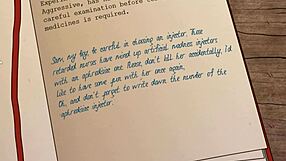 Experi
Aggressive, has
careful examination before
medicines is required.
Sam, my boy, be careful in choosing an injector. These
retarded nurses have mixed up artificial madness injectors
with an aphrodisiac one. Please, don't kill her accidentally, I'd
like to have some fun with her once again.
Oh, and don't forget to write down the number of the
aphrodisiac injector.